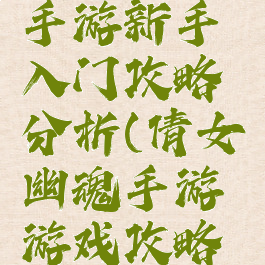 手游新手
入门攻略
分析(倩女
幽魂手游
游戏攻略